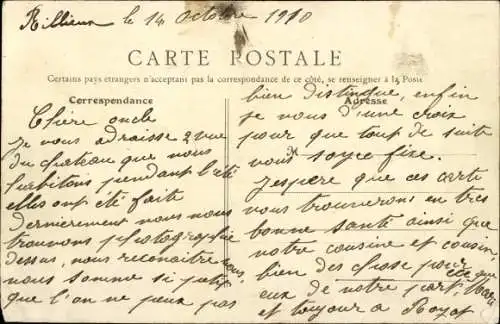 Rillieux le 14 octobre 1910
CARTE POSTALE
Certains pays étrangers n'acceptant pas la correspondance de ce côté, se renseigner à la Poste
Correspondance
Chère oncle
Je vous adraisse 2 vue
du chateau que nous
habitons pendant l'été
elles ont été faite
dernièrement nous nous
trouvons photographié
dessus, vous reconaitre nous
nous somme si petit
que l'on ne peux pas
Adresse
bien distingué, enfin
je vous d'une croix
pour que tout de suite
vous soyee fixe.
J'espère que ces carte
vous trouveront en très
bonne santé ainsi que
votre cousine et cousin,
bien des chose pour
eux de notre part,
et toujour a Royat